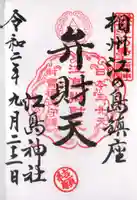 相州江の島鎮座
弁財天
江島神社
令和二年九月二十二日